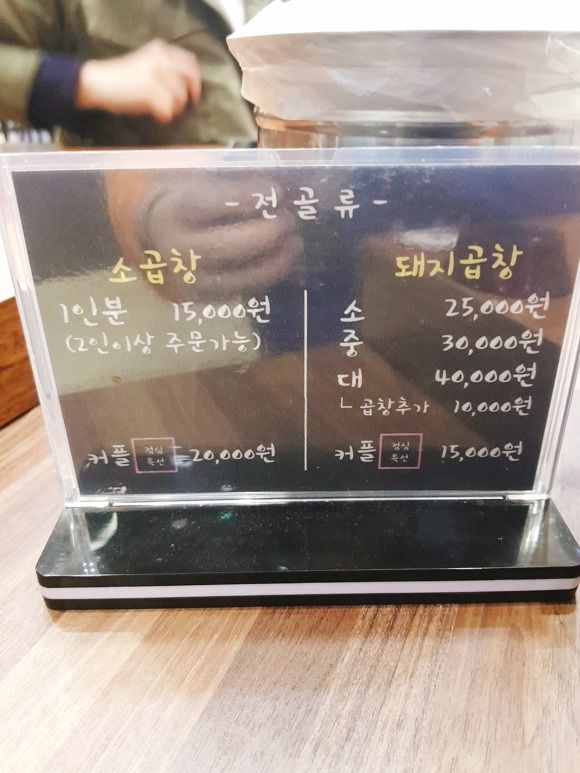 - 전골류 -
소곱창
1인분 15,000원
(2인이상 주문가능)
커플 점심특선 20,000원
돼지곱창
소 25,000원
중 30,000원
대 40,000원
ㄴ 곱창추가 10,000원
커플 점심특선 15,000원